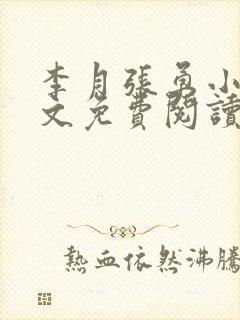 李月張勇小
文免費閱讀
熱血依然沸騰